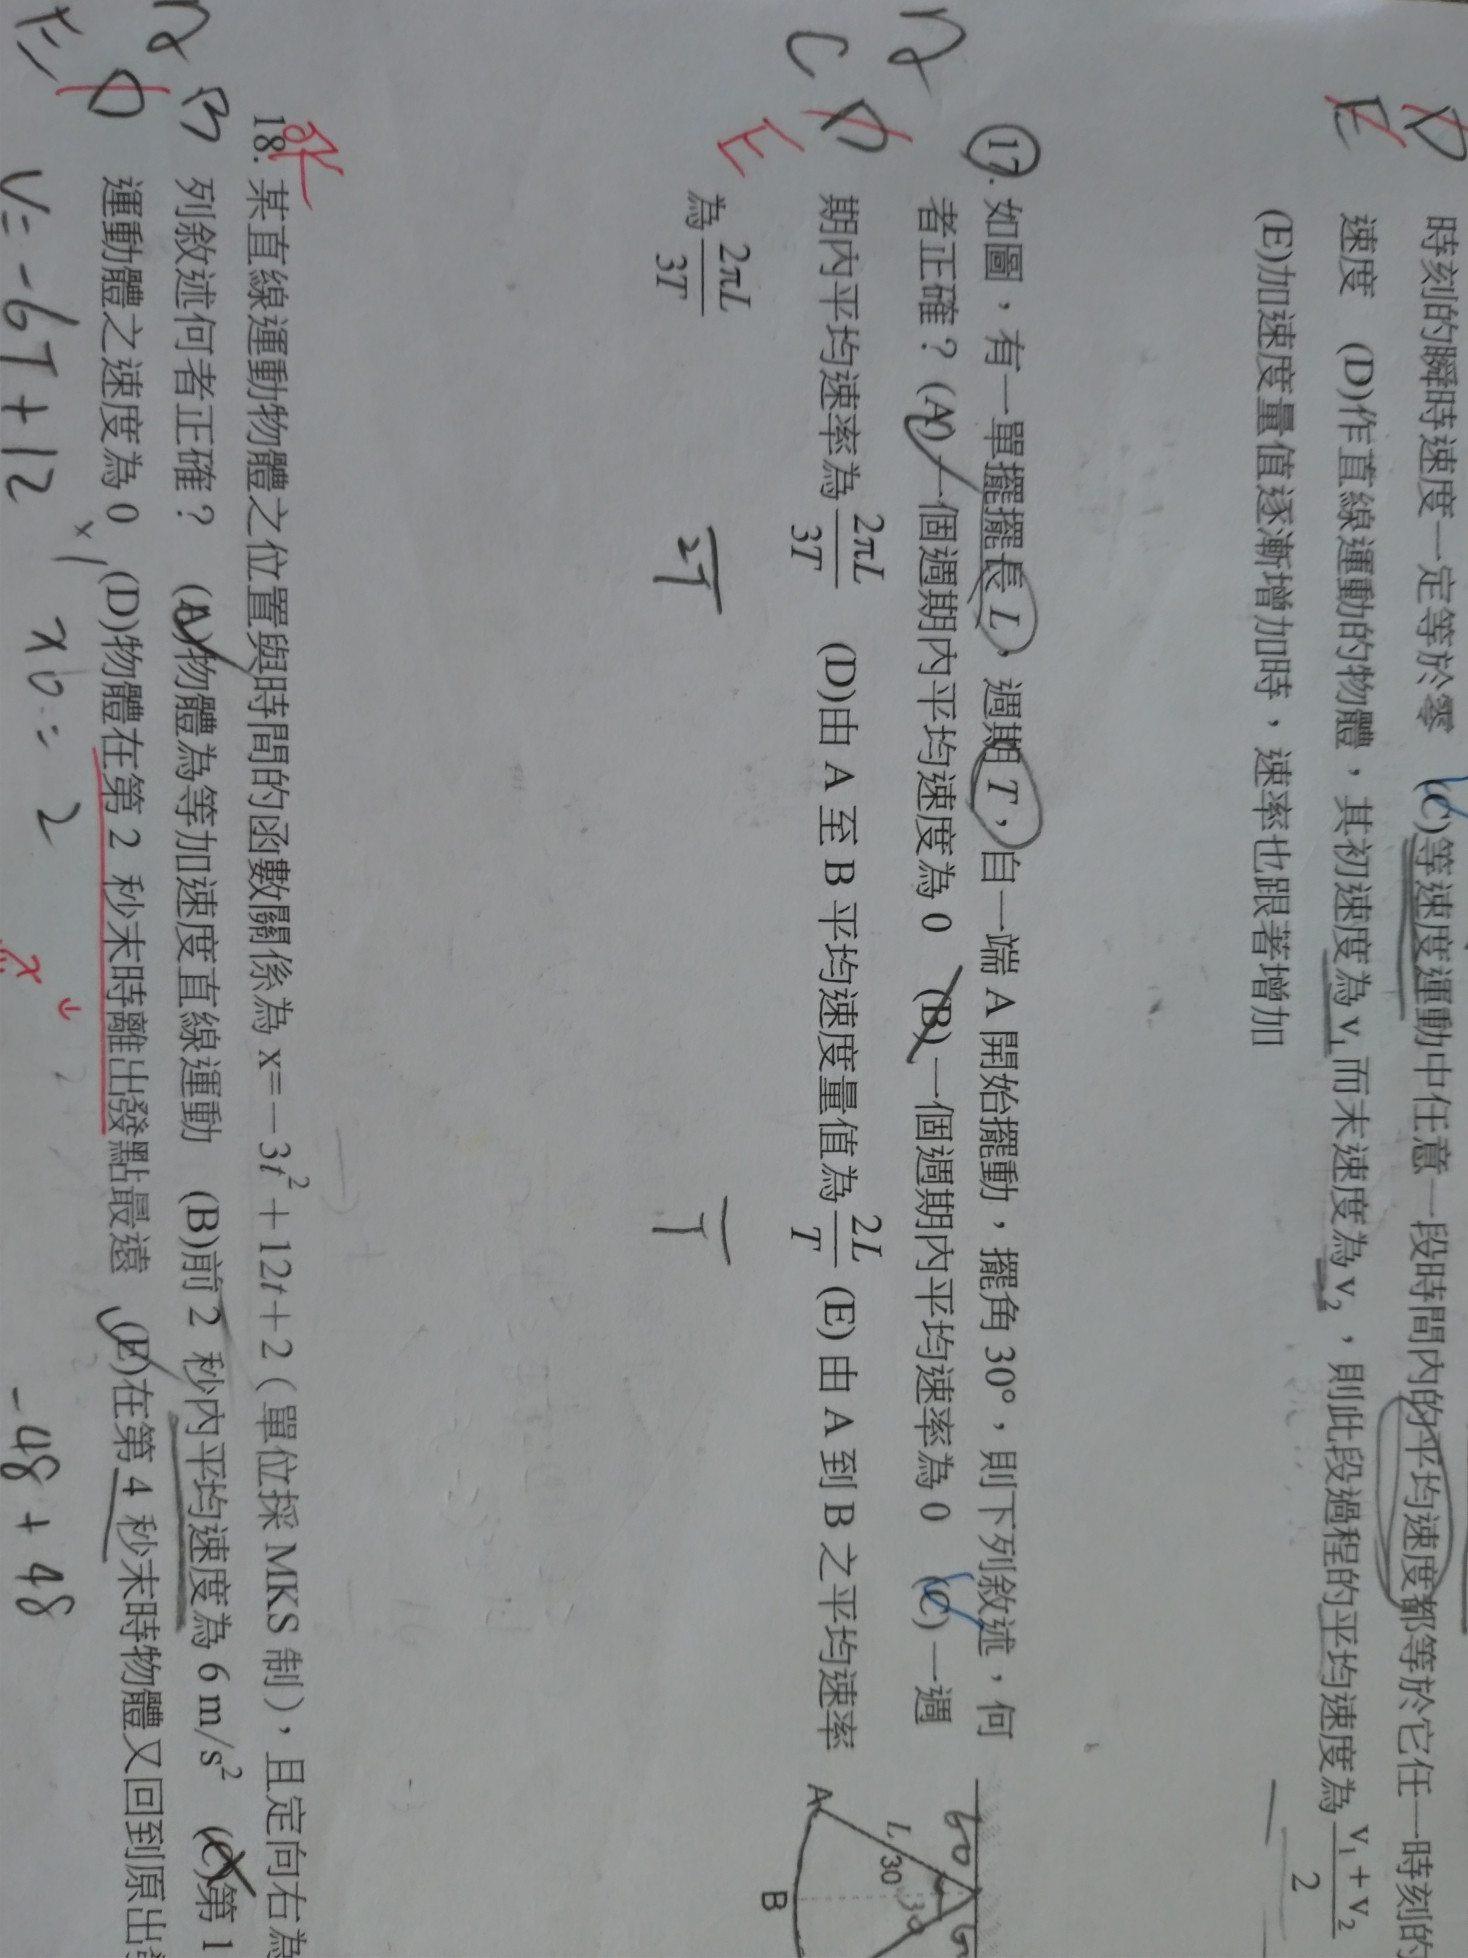 時刻的瞬時速度一定等於零 (C)等速度運動中任意一段時間內的平均速度都等於它任一時刻的
D
速度 (D)作直線運動的物體，其初速度為 v₁ 而末速度為 v₂，則此段過程的平均速度為 (v₁+v₂)/2
E
(E)加速度量值逐漸增加時，速率也跟著增加
17. 如圖，有一單擺擺長 L，週期 T，自一端 A 開始擺動，擺角 30°，則下列敘述，何
者正確？(A)一個週期內平均速度為 0 (B)一個週期內平均速率為 0 (C)一週
C D
期內平均速率為 2πL/3T (D)由 A 至 B 平均速度量值為 2L/T (E)由 A 到 B 之平均速率
E
為 2πL/3T
A
L
30
30
60
B
2T
T
18. 某直線運動物體之位置與時間的函數關係為 x=－3t²＋12t＋2（單位採 MKS 制），且定向右為
B
列敘述何者正確？ (A)物體為等加速度直線運動 (B)前 2 秒內平均速度為 6 m/s² (C)第 1
D
運動體之速度為 0 (D)物體在第 2 秒末時離出發點最遠 (E)在第 4 秒末時物體又回到原出發
E
V=-6T+12
x0=2
-48+48